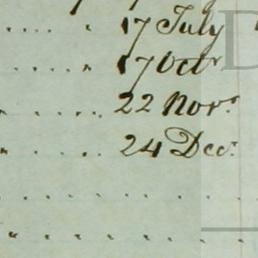 17 July
17 Octr
22 Novr.
24 Dec.